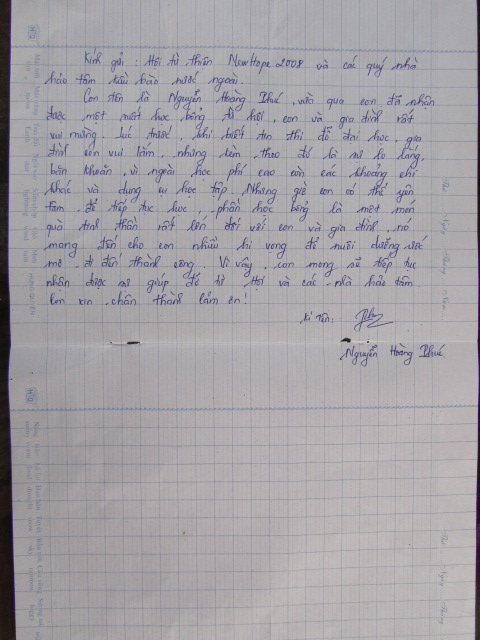 Kính gửi : Hội từ thiện NewHope 2008 và các quý nhà
hảo tâm kiều bào nước ngoài.
Con tên là Nguyễn Hoàng Phúc, vừa qua con đã nhận
được một một học bổng từ hội, con và gia đình rất
vui mừng. Lúc trước, khi biết tin thi đỗ đại học, gia
đình con vui lắm, nhưng kèm theo đó là sự lo lắng,
băn khoăn, vì ngoài học phí cao còn các khoảng chi
khác và dụng cụ học tập. Nhưng giờ con có thể yên
tâm để tiếp tục học, phần học bổng là một món
quà tinh thần rất lớn đối với con và gia đình, nó
mang đến cho con nhiều hi vọng để nuôi dưỡng ước
mơ đi đến thành công. Vì vậy, con mong sẽ tiếp tục
nhận được sự giúp đỡ từ Hội và các nhà hảo tâm.
Con xin chân thành cảm ơn!
Kí tên:
Nguyễn Hoàng Phúc